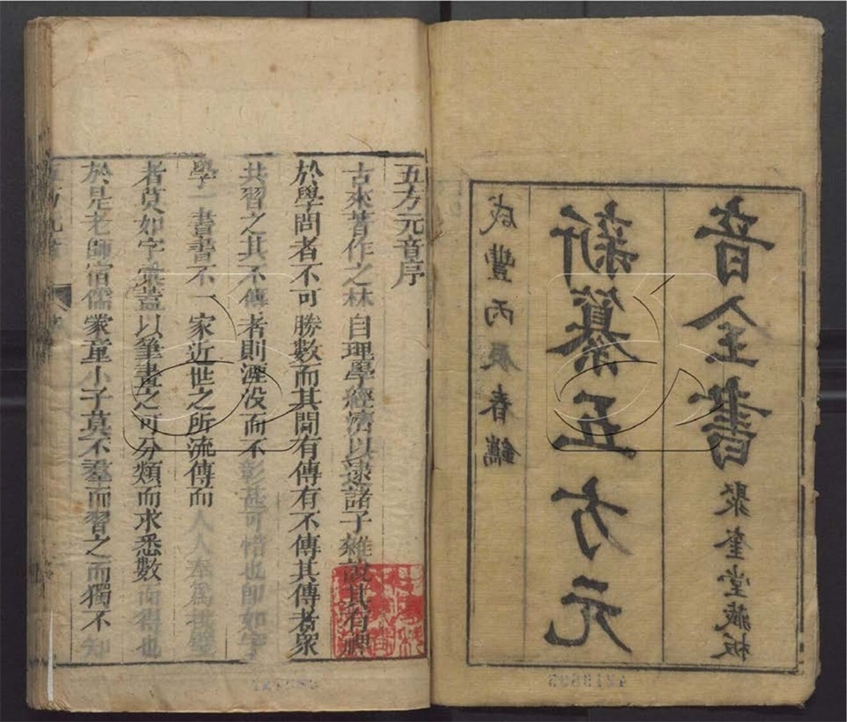 咸豐丙辰春鐫
新纂五方元
音全書
聚奎堂藏板
五方元音序
古來著作之林自理學經濟以逮諸子雜說其有裨
於學問者不可勝數而其間有傳有不傳其傳者衆
共習之其不傳者則湮没而不彰甚可惜也即如字
學一書書不一家近世之所流傳而人人奉爲拱璧
者莫如字彙葢以筆畫之可分類而求悉數而得也
於是老師宿儒蒙童小子莫不羣而習之而獨不知
五方元音